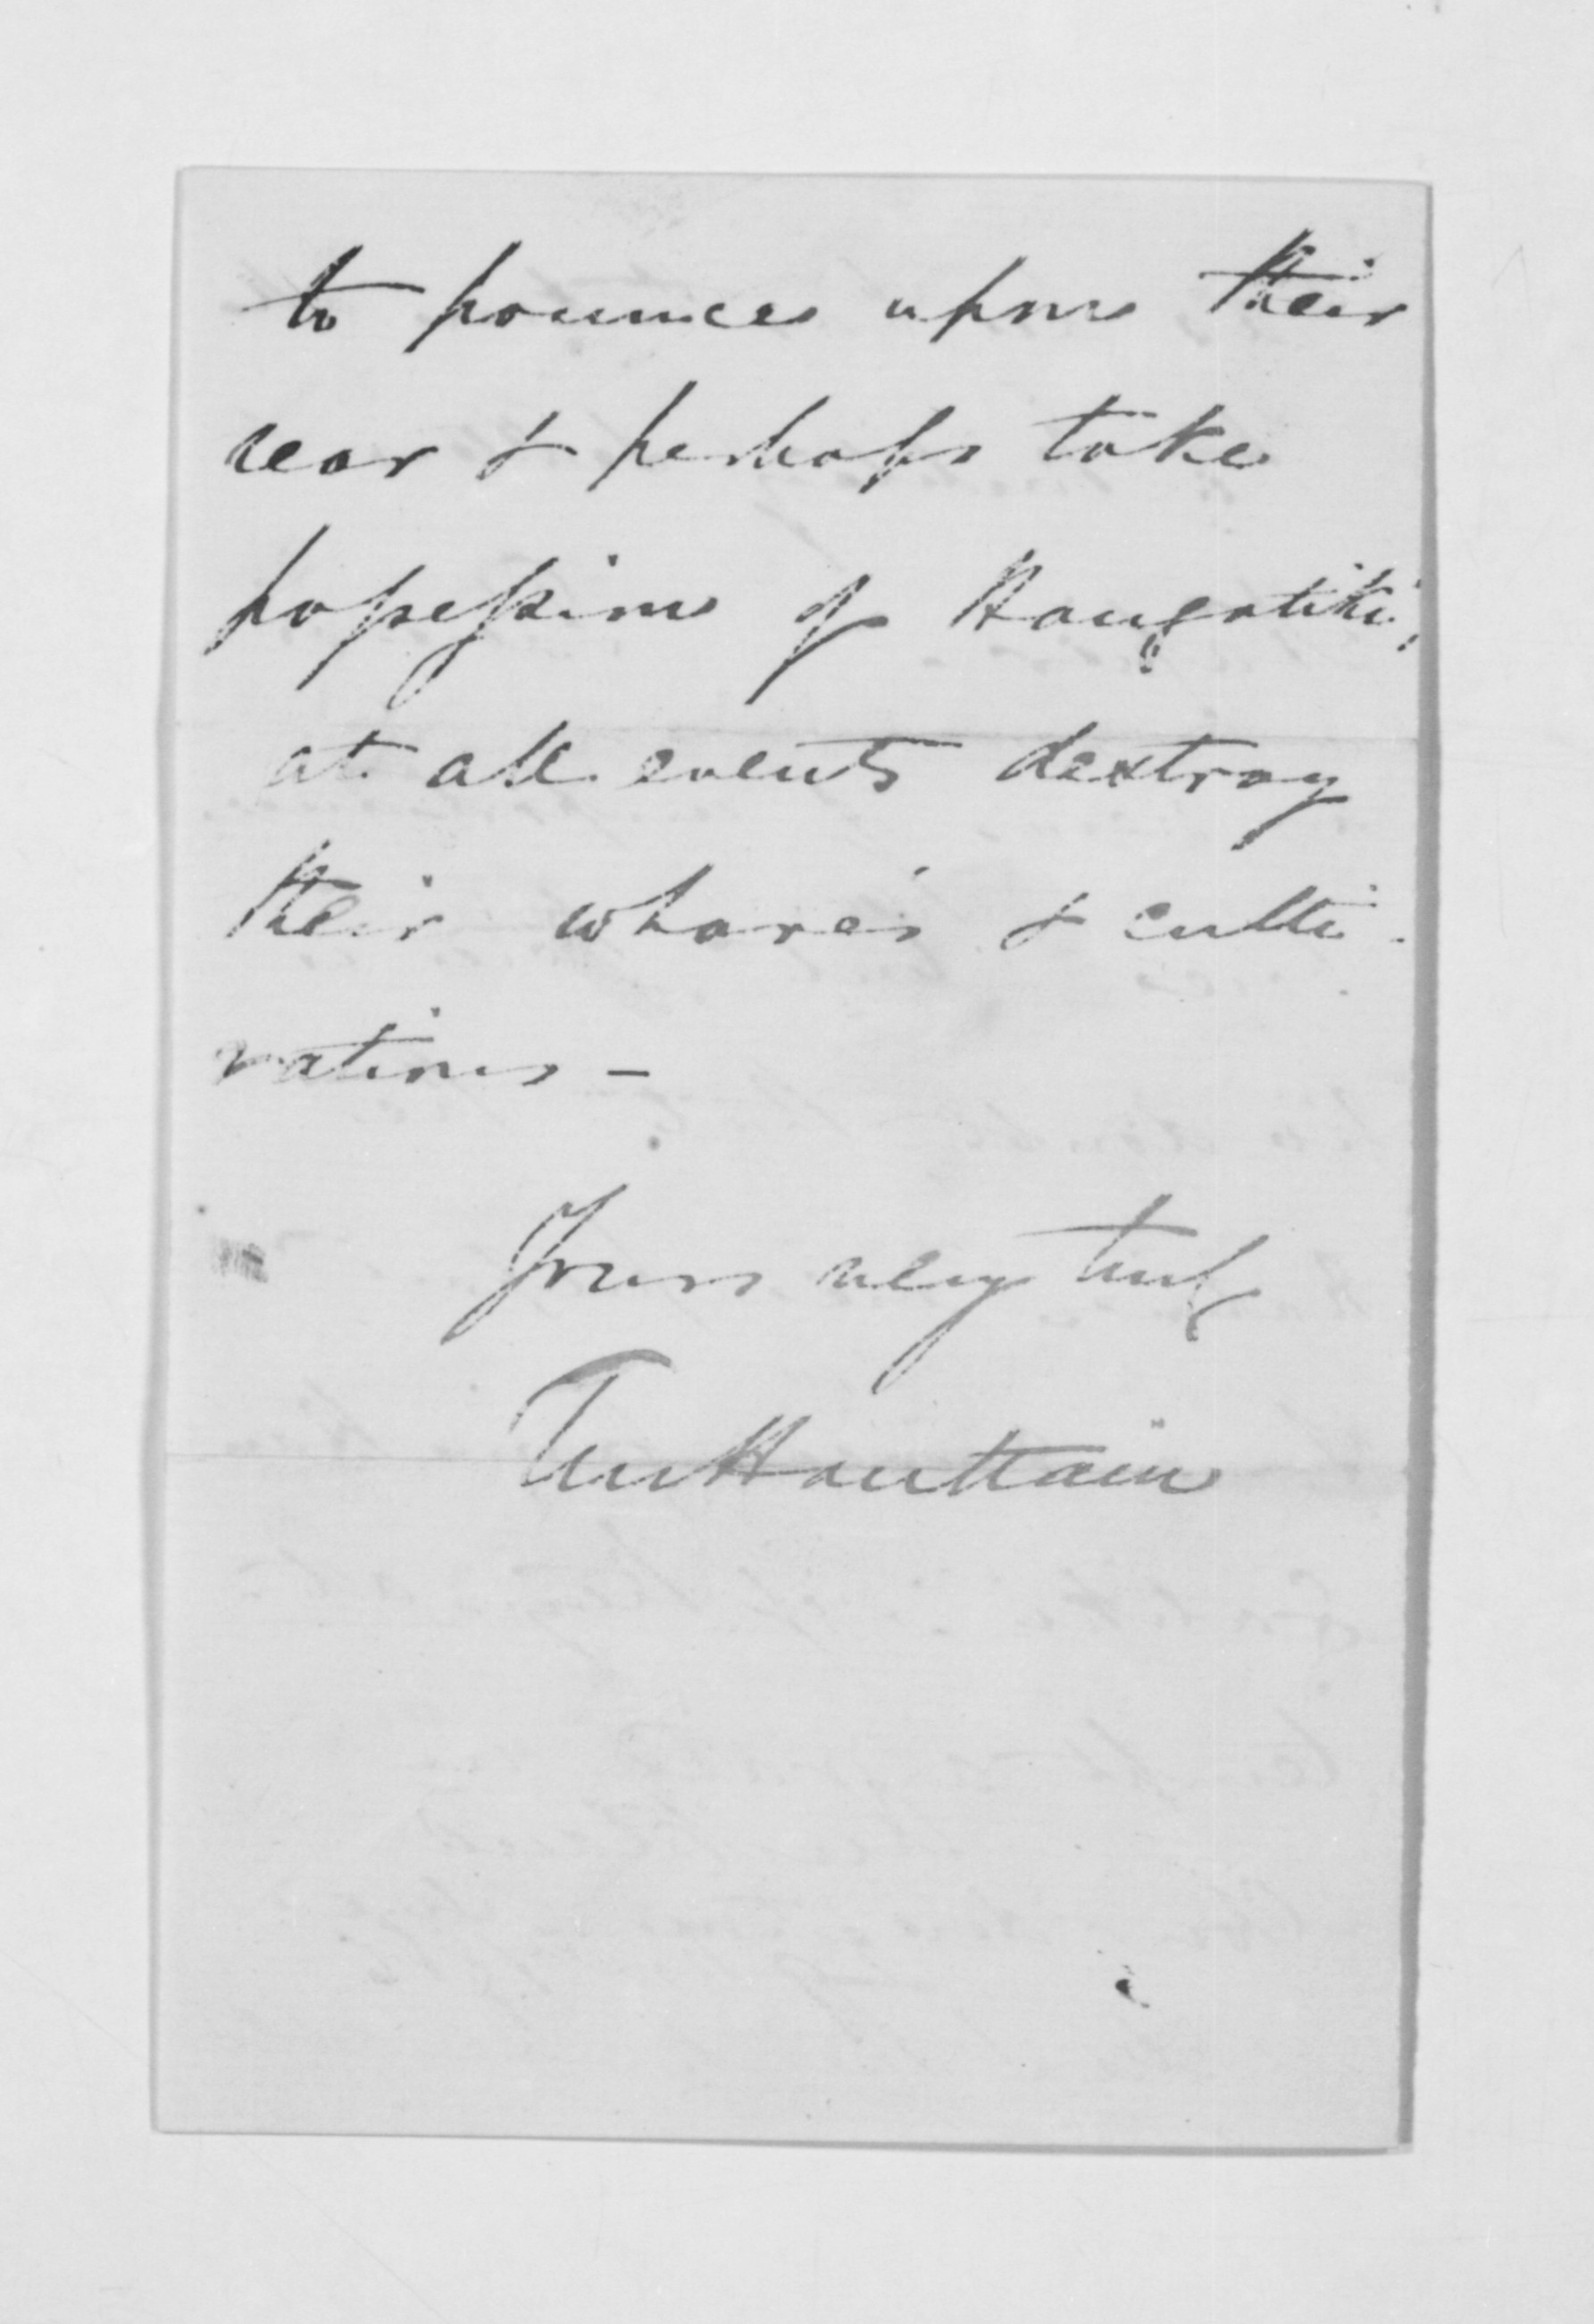 to pounce upon their
rear & perhaps take
possession of Hangatiki,
at all events destroy
their whare's & culti-
vations -
Yours very truly
Haultain